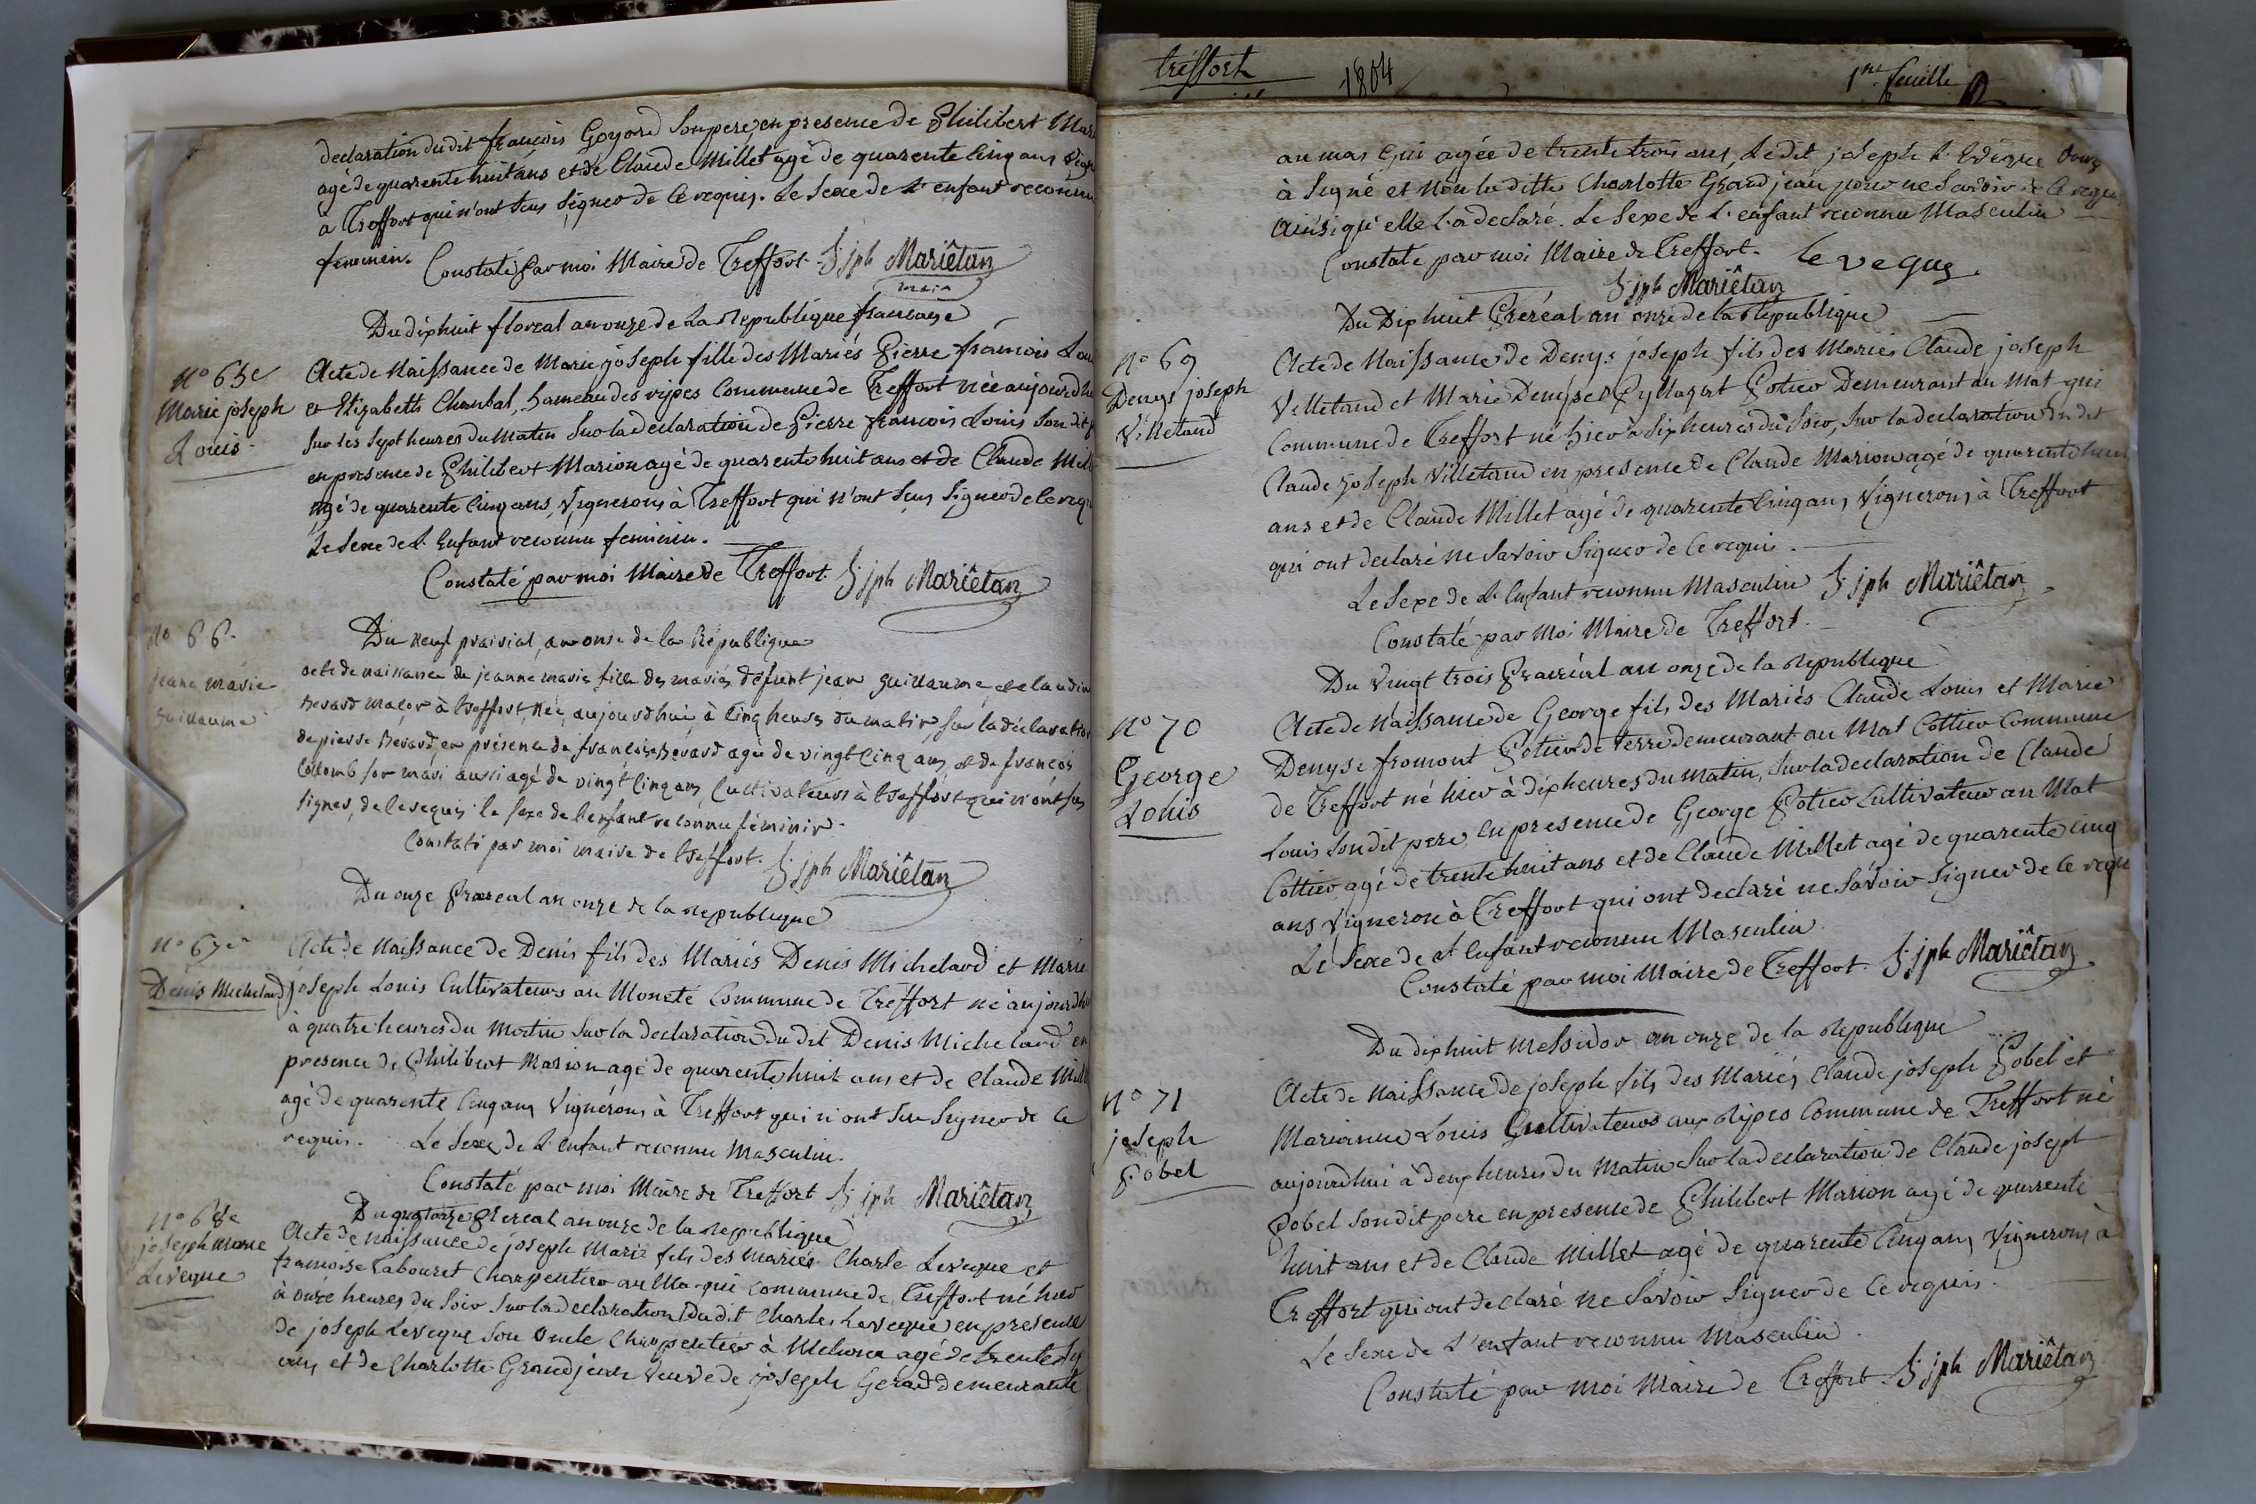 declaration du dit françois Goyard son pere, en presence de Philibert Mar
agé de quarente huit ans et de Claude Millet agé de quarente cinq ans
a Treffort qui n'ont sçus signer de ce requis. Le Sexe de l'enfant reconnu
femenin. Constaté par moi Maire de Treffort. Jph Mariêtan
maire
Du dixhuit floreal an onze de la Republique francaise
N° 65e
Marie joseph
Louis
Acte de Naissance de Marie joseph fille des Mariés Pierre françois Lou
et Elizabeth Chanbal, hameau des ripes Commune de Treffort née aujourdhu
sur les sept heures du Matin sur la declaration de Pierre françois Louis son dit p
en presence de Philibert Marion agé de quarente huit ans et de Claude Mill
agé de quarente cinq ans, Vignerons à Treffort qui n'ont sçus signer de ce requ
Le Sexe de l'Enfant reconnu feminin.
Constaté par moi Maire de Treffort. Jph Mariêtan
N° 66.
jeane marie
guillaume
Du neuf prairial, an onse de la République
acte de naissance de jeanne marie fille des mariés défunt jean guillaume et claudin
Berard maçon à treffort, Née aujourdhui à cinq heures du matin sur la déclaration
de pierre Berard, en présence de françoise Berard agée de vingt cinq ans, et de francois
Colomb son mari aussi agé de vingt cinq ans, Cultivateurs à treffort qui n'ont sçus
signer, de ce requis le sexe de l'enfant reconnu féminin.
Constaté par moi maire de treffort. Jph Mariêtan
Du onze Prareal an onze de la Republique
N° 67e
Denis Michelard
Acte de Naissance de Denis fils des Mariés Denis Michelard et Marie
joseph Louis Cultivateurs au Moneté Commune de Tréffort né aujourdhu
à quatre heures du Matin sur la declaration du dit Denis Michelard en
presence de Philibert Marion agé de quarente huit ans et de Claude Mill
agé de quarente cinq ans Vignérons à Treffort qui n'ont sçu signer de ce
requis. Le Sexe de l'enfant reconnu Masculin.
Constaté par moi Maire de Treffort Jph Mariêtan
N° 68e
joseph Marie
Leveque
Du quatorze Prereal an onze de la Republique
Acte de Naissance de joseph Marie fils des Mariés Charle Leveque et
françoise Labouret Charpentier au Ma-qui commune de Treffort né hier
à onze heures du Soir sur la declaration du dit Charles Leveque en presence
de joseph Leveque son Oncle Charpentier à agé de trente six
ans et de Charlotte Grandjean Veuve de joseph Gérad demeurante
Tréffort 1804 1re feuille
au mas Qui agée de trente trois ans, Le dit joseph Leveque
à Signé et Non la ditte Charlotte Grandjean pour ne savoir de ce requis
Ainsi qu'elle l'a declaré. Le Sexe de l'enfant reconnu Masculin
Constaté par moi Maire de Treffort. le veque
Jph Mariêtan
Du Dixhuit Preréal an onze de la Republique
N° 69
Denys joseph
Villetand
Acte de Naissance de Denys joseph fils des Mariés Claude joseph
Villetand et Marie Denyse Potier Demeurant au Mas-qui
Commune de Treffort né hier à Six heures du Soir, sur la declaration du dit
Claude joseph Villetand en presence de Claude Marion agé de quarente huit
ans et de Claude Millet agé de quarente Cinq ans Vignerons à Treffort
qui ont declaré ne Savoir signer de ce requis.
Le Sexe de l'Enfant reconnu Masculin Jph Mariêtan
Constaté par moi Maire de Treffort.
Du Vingt trois Prairéal an onze de la Republique
N° 70
George
Louis
Acte de Naissance de George fils des Mariés Claude Louis et Marie
Denyse fromont Potier de terre demeurant au Mas Cottier Commune
de Treffort né hier à dix heures du Matin, sur la declaration de Claude
Louis son dit pere, en presence de George Potier Cultivateur au Mas
Cottier agé de trente huit ans et de Claude Millet agé de quarente cinq
ans Vigneron à Treffort qui ont declaré ne Savoir signer de ce requ
Le Sexe de l'enfant reconnu Masculin
Constaté par moi Maire de Treffort. Jph Mariêtan
Du dixhuit Messidor an onze de la Republique
N° 71
joseph
Gobel
Acte de Naissance de joseph fils des Mariés Claude joseph Gobel et
Marianne Louis Cultivateurs aux Ripes Commune de Treffort né
aujourdhui à deux heures du Matin sur la declaration de Claude joseph
Gobel son dit pere en presence de Philibert Marion agé de quarente
huit ans et de Claude Millet agé de quarente Cinq ans Vignerons à
Treffort qui ont declaré ne Savoir signer de ce requis.
Le Sexe de l'enfant reconnu Masculin.
Constaté par moi Maire de Treffort. Jph Mariêtan